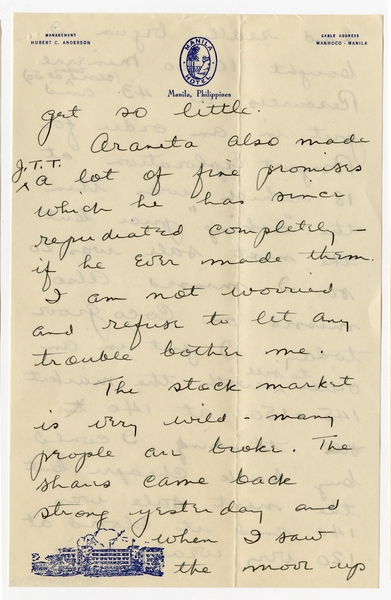 MANAGEMENT
HUBERT C. ANDERSON
MANILA
HOTEL
Manila, Philippines
CABLE ADDRESS
MANHOCO - MANILA
get so little.
Araneta also made
J.T.T. a lot of fine promises
which he has since
repudiated completely –
if he ever made them.
I am not worried
and refuse to let any
trouble bother me.
The stock market
is very wild - many
people are broke. The
shares came back
strong yesterday and
when I saw
the move up